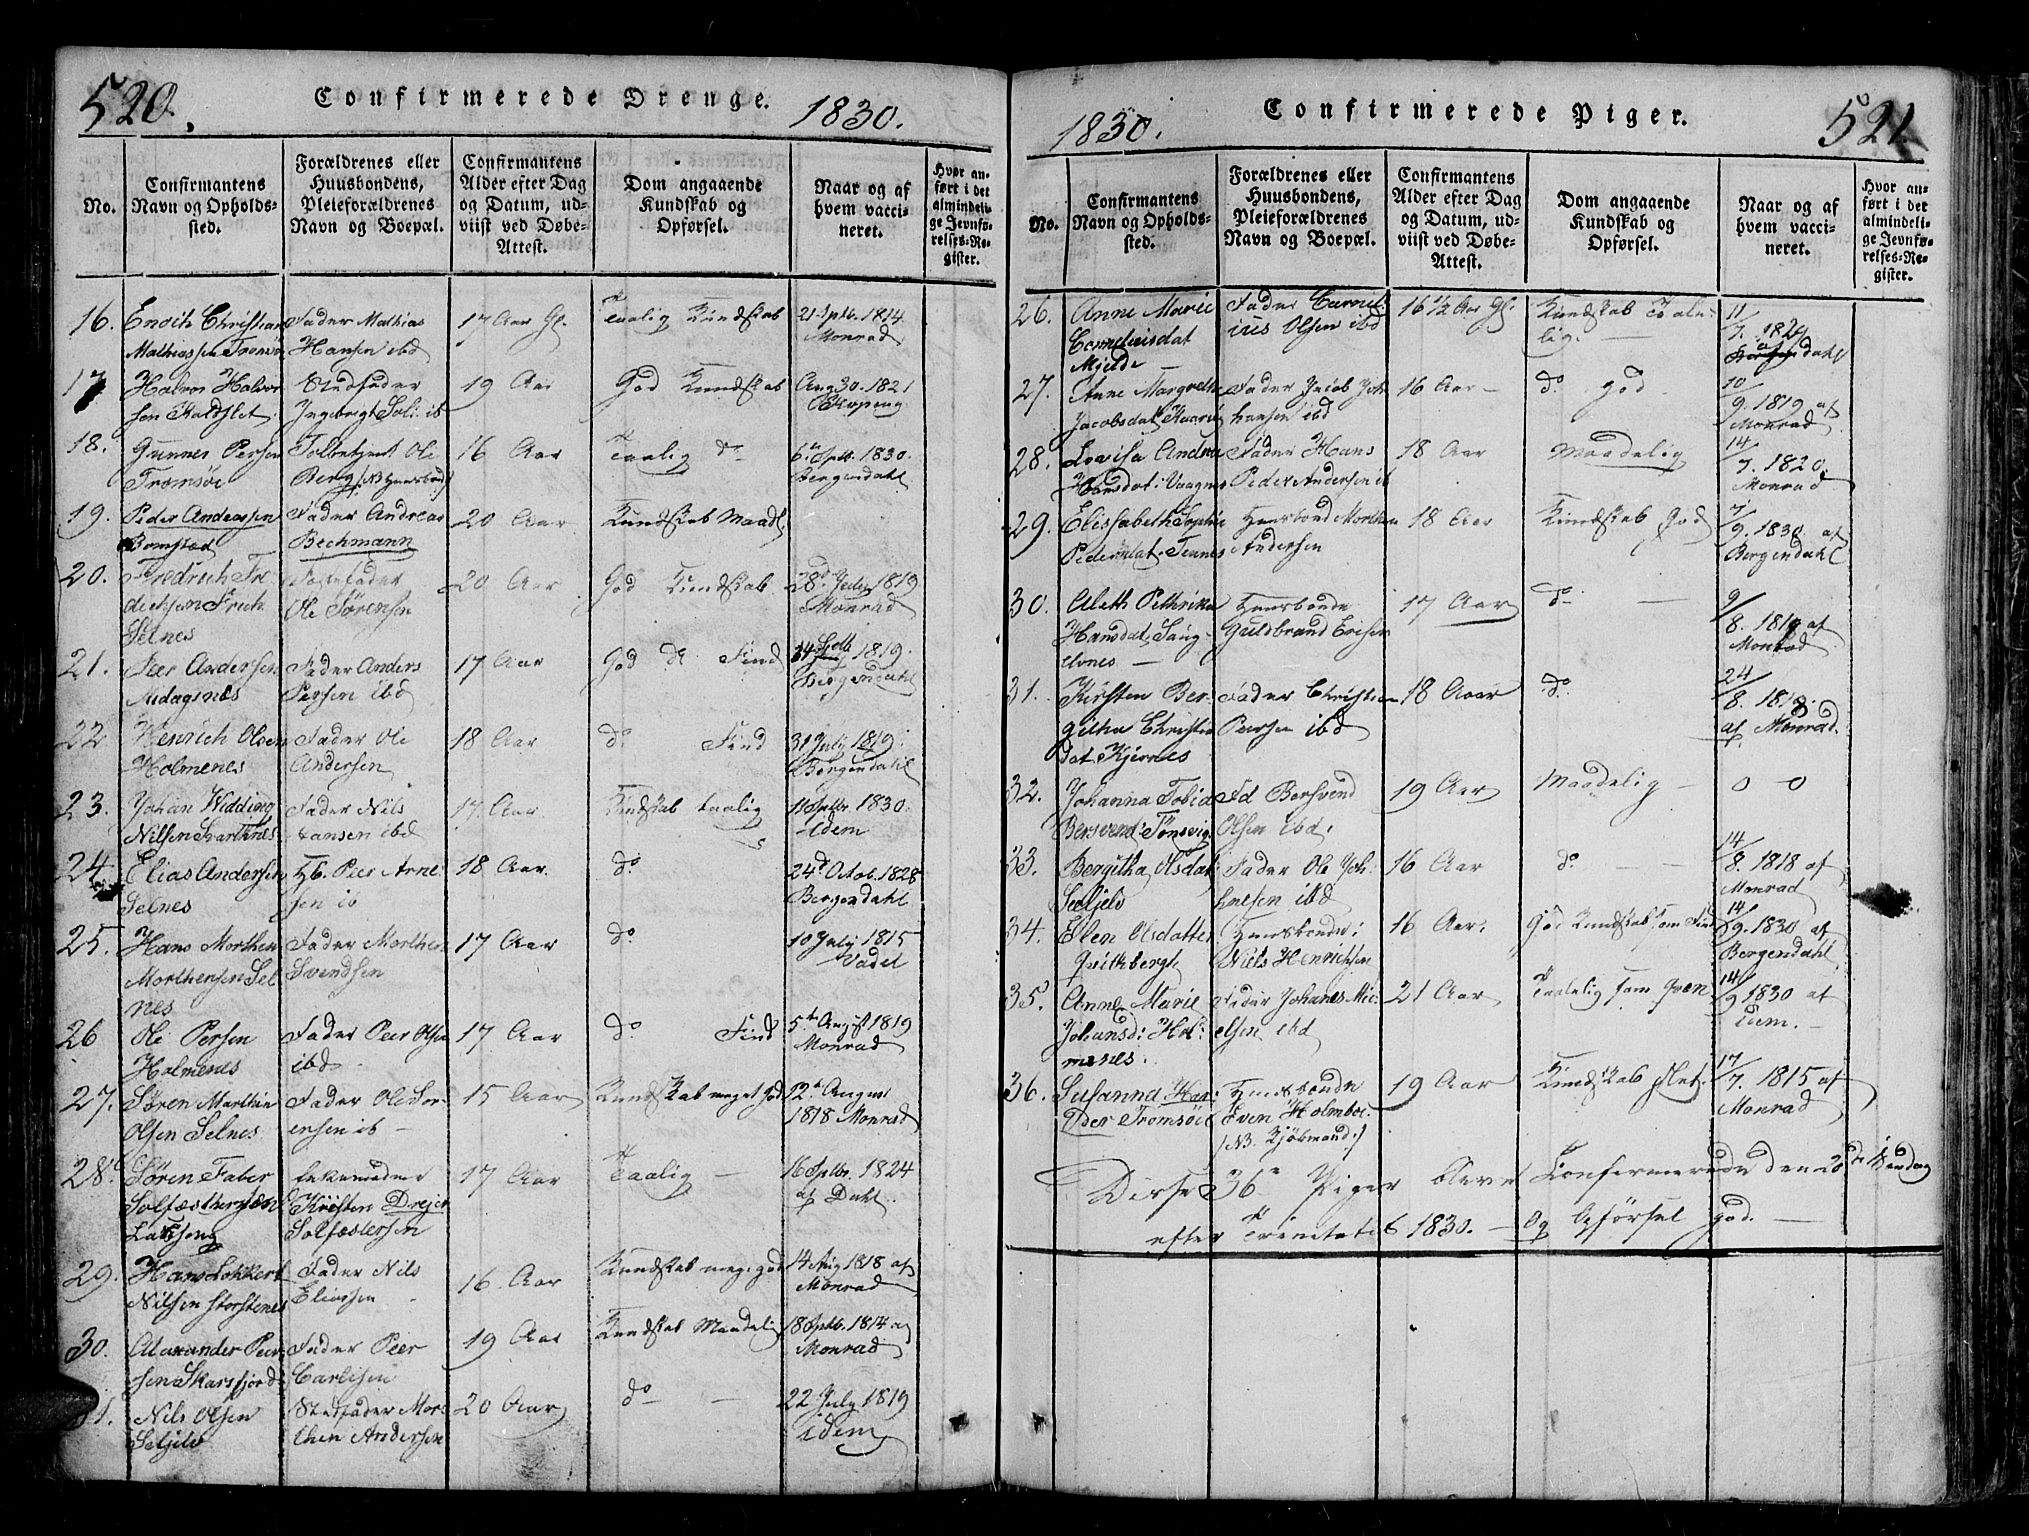 520.
Confirmerede Drenge.
1830.
No.
Confirmantens Navn og Opholdssted.
Forældrenes eller Huusbondens, Pleieforældrenes Navn og Boepæl.
Confirmantens Alder efter Dag og Datum, udviist ved Døbe-Attest.
Dom angaaende Kundskab og Opførsel.
Naar og af hvem vaccineret.
Hvor anført i det almindelige Jevnførelses-Register.
16. Enoch Christian Fader Mathias 17 Aar Gl. Taalig Kundskab 21 Sptb. 1814
Mathiassen Tromsø Hansen ibd Monrad
17 Halvor Halvor Stedfader 19 Aar God Kundskab Aug 30. 1821
sen Kaldslet Ingebregt Sol: ib
18. Gunnes Persen Toldbetjent Ole 16 Aar Taalig do 6te Sptr. 1830.
Tromsøe Berg (NB Huusbond) Bergendahl
19. Peder Andreassen Fader Andreas 20 Aar Kundskab Maadl.
Bomstad Bechmann
20. Fredrich Fre Fosterfader 20 Aar God Kundskab 28d July 1819
dichsen Frich Ole Sørensen Monrad
Selnes
21. Peer Andersen Fader Anders 17 Aar God do Find 24 Sptb 1819
Persen ibd Bergendahl
22 Henrich Olsen Fader Ole 18 Aar do Find 31 July 1819.
Holmenes Andersen Bergendahl
23. Johan Widding Fader Nils 17 Aar Kundskab taalig 11 Sptbr. 1830.
Nilsen Svartnes Hansen ibd idem
24. Elias Andersen Hb. Peer Arne 18 Aar. do 24d Octob. 1828
Selnes sen ib Bergendahl
25. Hans Morthen Fader Morthen 17 Aar do 10 July 1815
Morthensen Sel Svendsen Vadel
nes
26 Ole Persen Fader Peer Olsen 17 Aar do Find 5te August 1819
Holmenes ibd Monrad
27. Søren Marthin Fader Ole Sør 15 Aar Kundskab meget god 12d August
Olsen Selnes ensen ib 1818 Monrad
28. Søren Faber 17 Aar Taalig 16 Sptbr. 1824
Solfæstersøn Kristen Drejer af Dahl.
Solfæstersen
29. Hans Lokkert Fader Nils 16 Aar Kundskab meg: god 14 Aug 1818 af
Nilsen Storstenes Eliassen Monrad
30. Alexander Peer Fader Peer 19 Aar Kundskab Maadelig 18 Sptb. 1814 af
sen Skarsfjord Carlsen Monrad
31. Nils Olsen Stedfader Mor 20 Aar do 22 July 1819
Seljelv then Andersen idem
1830.
Confirmerede Piger.
521.
No.
Confirmantens Navn og Opholdssted.
Forældrenes eller Huusbondens, Pleieforældrenes Navn og Boepæl.
Confirmantens Alder efter Dag og Datum, udviist ved Døbe-Attest.
Dom angaaende Kundskab og Opførsel.
Naar og af hvem vaccineret.
Hvor anført i det almindelige Jevnførelses-Register.
26. Anne Marie Fader Cornel 16 1/2 Aar Gl. Kundskab Taale 11
Corneliusdat ius Olsen ibd lig. 7. 1829
Mjelde af Bergendahl
27. Anne Margrethe Fader Jacob Joh 16 Aar do god 10
Jacobsdat hansen ibd 9. 1819 af Monrad
28. Lovisa Andrea Fader Hans 18 Aar Maadelig 14
Hansdat: Vaagnes Peder Andersen ib 7. 1820. Monrad
29. Elissabeth Sophie Huusbond Morthen 18 Aar Kundskab God 7
Pedersdat. Tennes Andersen 9. 1830 af Bergendahl
30. Aleth Pethrika Huusbonde 17 Aar do 9
Hansdat. Guldbrand Ericsen 8. 1819 af Monrad
31. Kirsten Ber Fader Christian 18 Aar do 24
githa Christia Persen ibd 8. 1818.
dat Kjernes af Monrad.
32. Johanna Tobia Fd Bersvend 19 Aar Maadelig 0 0
Bersvend: Tønsvig Olsen ibd.
33. Bergitha Olsdat. Fader Ole Joh. 16 Aar do 14
Seljelv hnesen ibd 8. 1818 af Monrad
34. Elen Olsdatter Huusbonde: 16 Aar. God Kundskab som Find 14
Qvitberg Niels Henrichsen 9. 1830 af Bergendahl
35. Anne Marie Fader Johanes Mic 21 Aar Taalelig som Qven 14
Johansd: Hol elsen ibd 9 1830 af
menes. idem.
36. Susanna Har Huusbonde 19 Aar Kundskab slet. 17
der Tromsøe Even Holmboe 7. 1815 af
(NB. Kjøbmand.) Monrad
Disse 36 Piger bleve Confirmerede den 20de Søndag
efter Trinitatis 1830. Og Opførsel god.